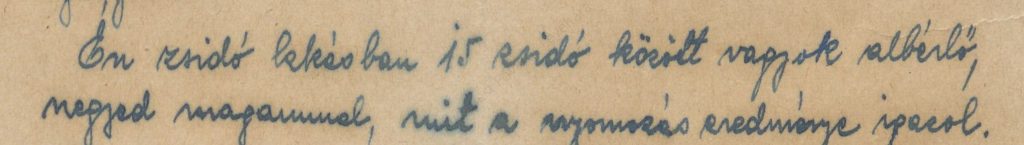 Én zsidó lakásban 15 zsidó között vagyok albérlő,
negyed magammal, mit a nyomozás eredménye igazol.